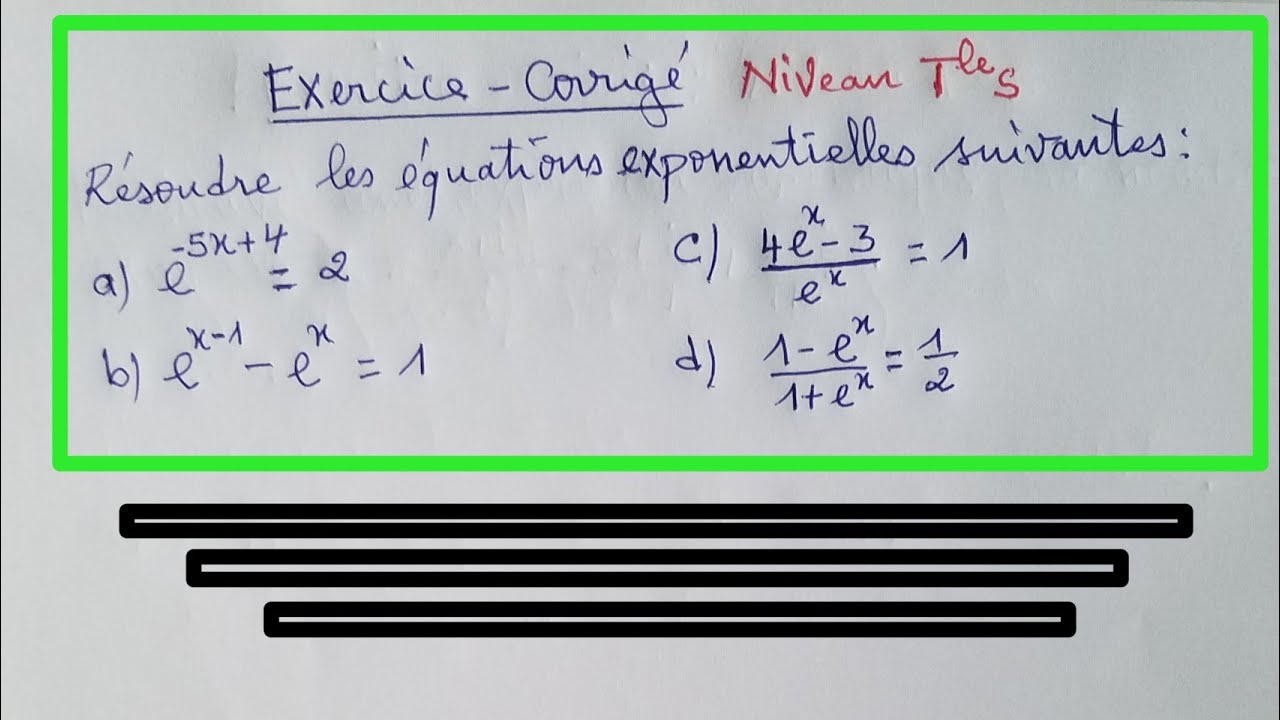 Exercice - Corrigé Niveau Tle S
Résoudre les équations exponentielles suivantes :
a) e^{-5x+4} = 2
b) e^{x-1} - e^x = 1
c) \frac{4e^x - 3}{e^x} = 1
d) \frac{1 - e^x}{1 + e^x} = \frac{1}{2}